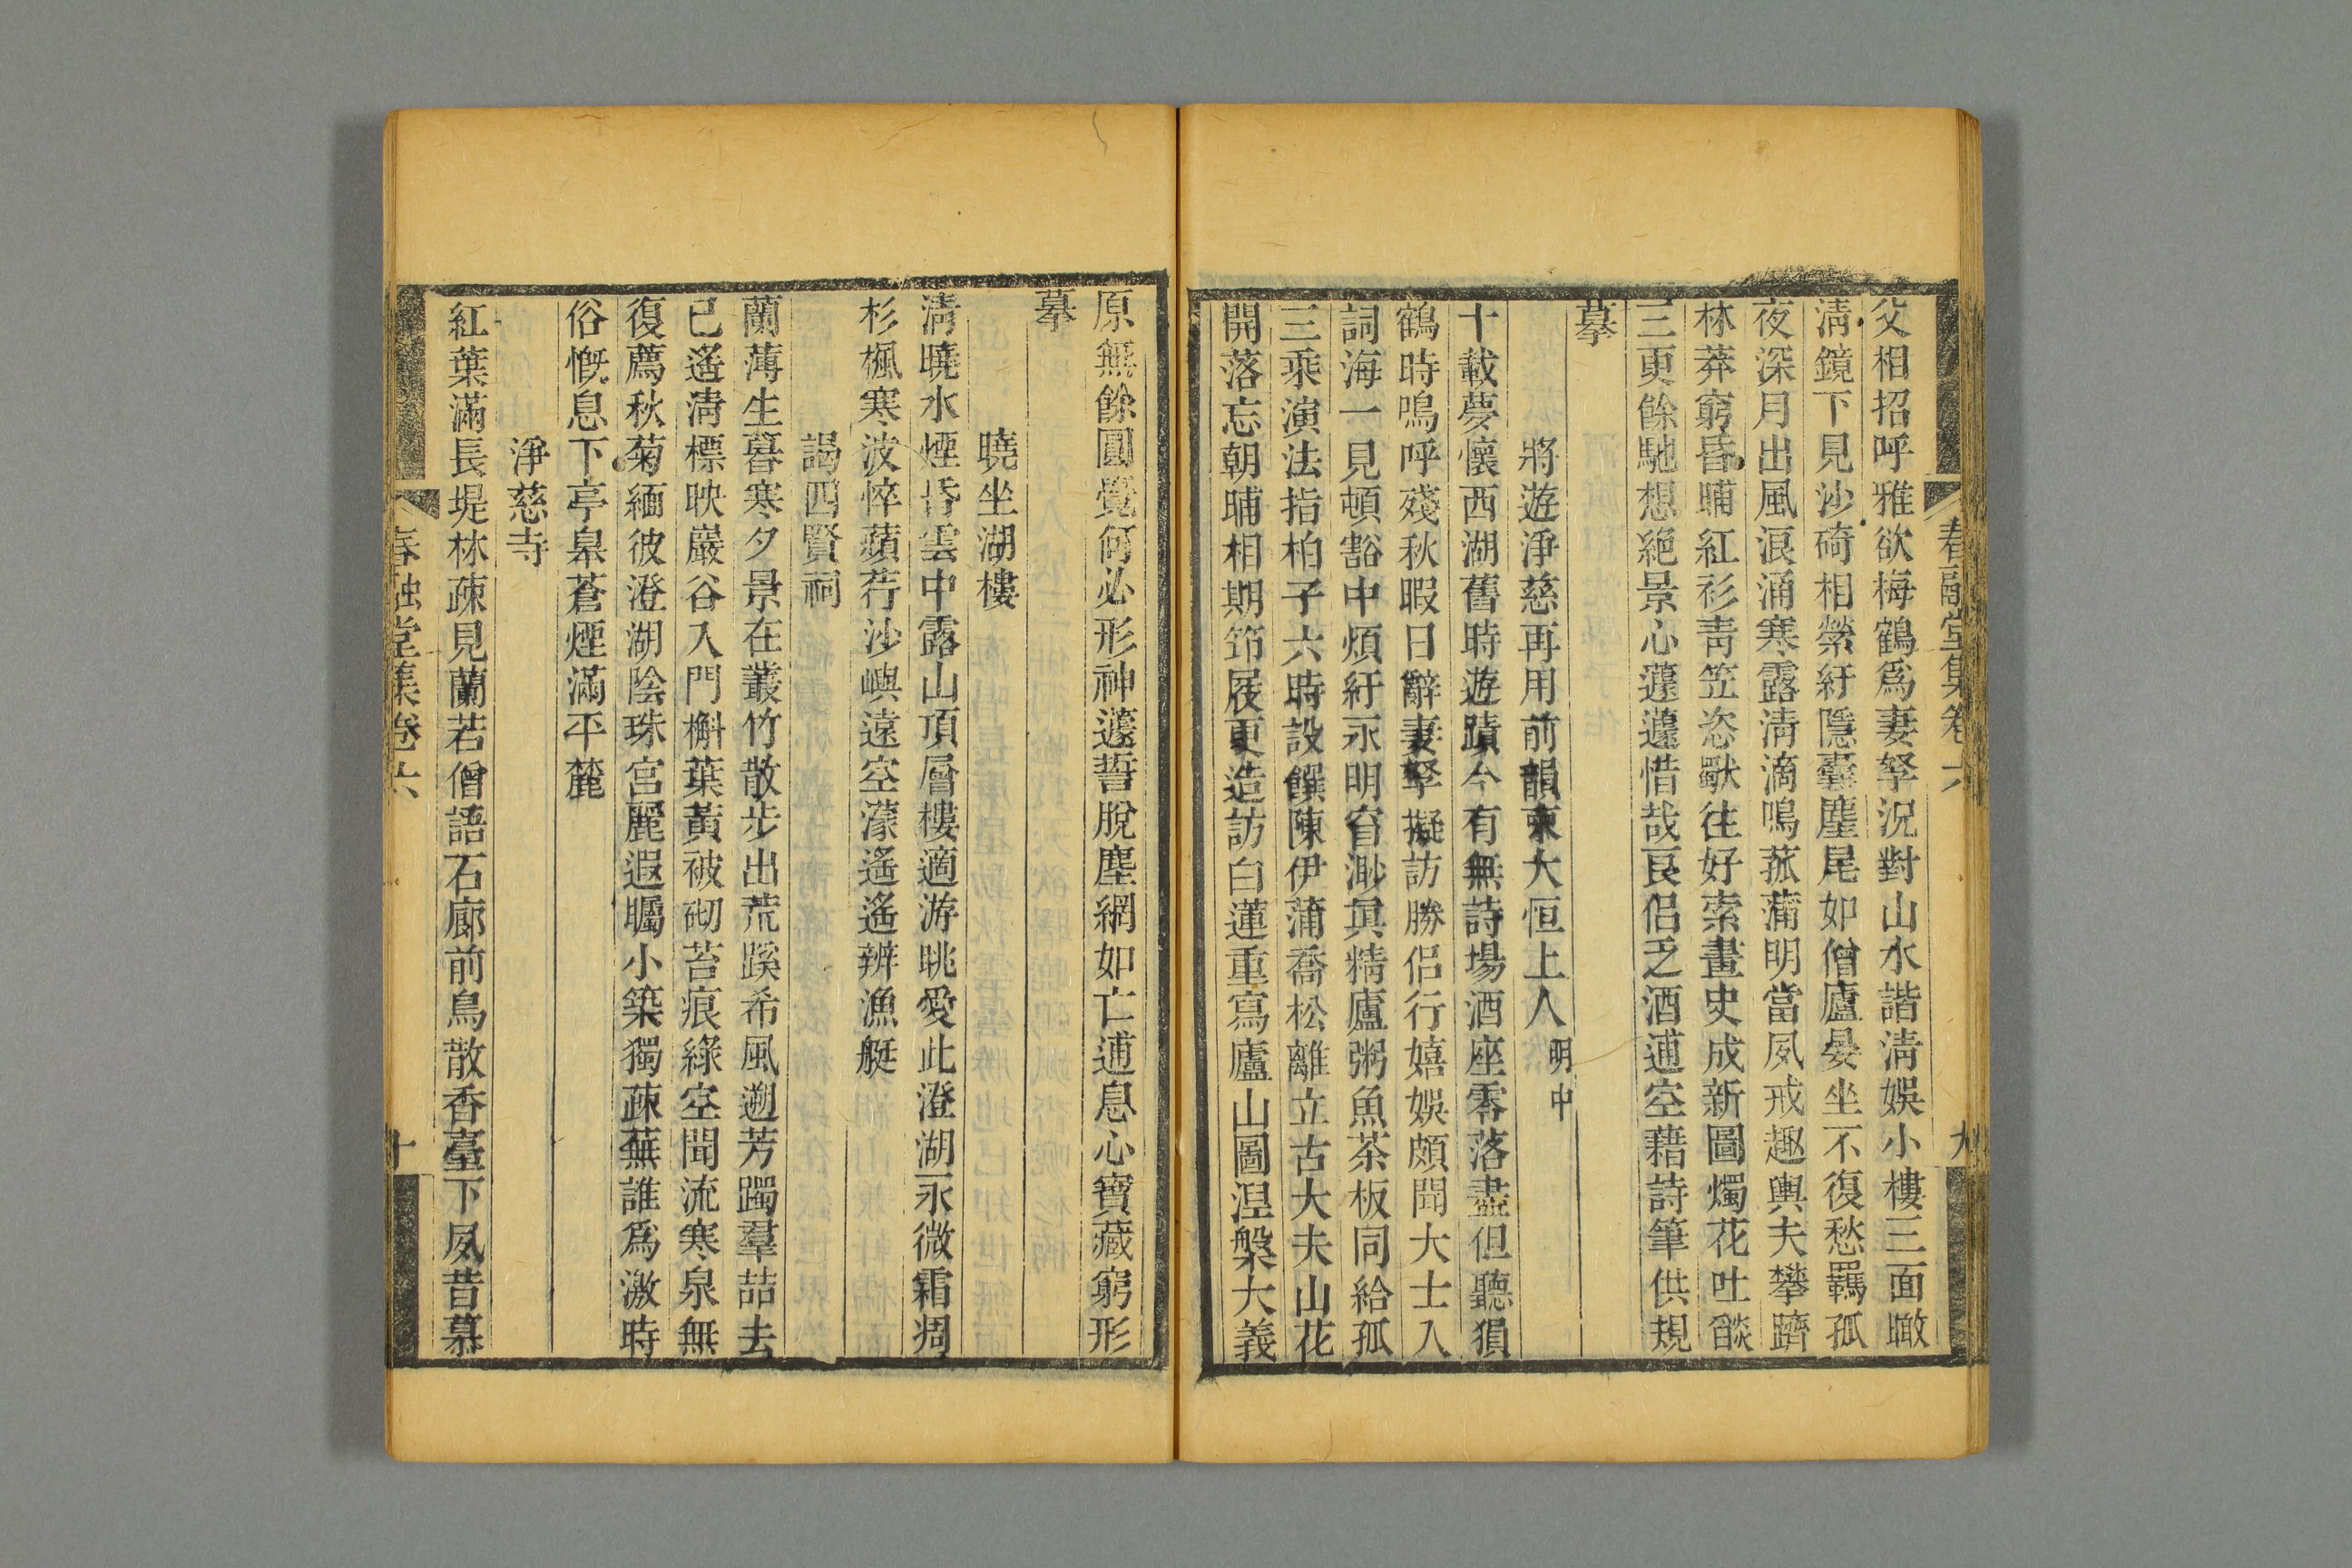 春融堂集卷六
九
父相招呼雅欲梅鶴爲妻孥況對山水諧淸娛小樓三面瞰
淸鏡下見沙碕相縈紆隱囊麈尾如僧廬晏坐不復愁羈孤
夜深月出風浪涌寒露淸滴鳴菰蒲明當夙戒趣輿夫攀躋
林莽窮昏晡紅衫靑笠恣歠往好索畫史成新圖燭花吐燄
三更餘馳想絶景心蘧蘧惜哉良侶乏酒逋空藉詩筆供規
摹
將遊淨慈再用前韻柬大恒上人明中
十載夢懷西湖舊時遊蹟今有無詩場酒座零落盡但聽猨
鶴時嗚呼殘秋暇日辭妻孥擬訪勝侶行嬉娛頗聞大士入
詞海一見頓豁中煩紆永明旨渺眞精廬粥魚茶板同給孤
三乘演法指柏子六時設饌陳伊蒲喬松離立古大夫山花
開落忘朝晡相期笻屐更造訪白蓮重寫廬山圖涅槃大義
原無餘圓覺何必形神蘧誓脫塵網如亡逋息心寶藏窮形
摹
曉坐湖樓
淸曉水煙昏雲中露山頂層樓適游眺愛此澄湖永微霜凋
杉楓寒波悴蘋荇沙嶼遠空濛遙遙辨漁艇
謁四賢祠
蘭薄生暮寒夕景在叢竹散步出荒蹊希風遡芳躅羣喆去
已遙淸標映巖谷入門槲葉黃被砌苔痕綠空聞流寒泉無
復薦秋菊緬彼澄湖陰珠宮麗遐矚小築獨疎蕪誰爲激時
俗慨息下亭皐蒼煙滿平麓
淨慈寺
紅葉滿長堤林疎見蘭若僧語石廊前鳥散香臺下夙昔慕
春融堂集卷六
十